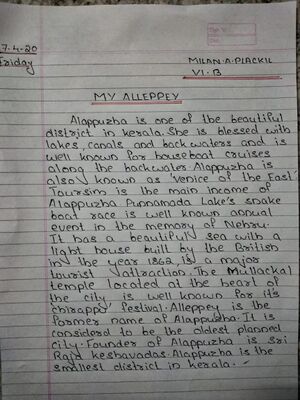 17-4-20
Friday
MILAN.A.PLACKIL
VI-B
MY ALLEPPEY
Alappuzha is one of the beautiful
district in kerala. She is blessed with
lakes, canals and backwaters and is
well known for houseboat cruises
along the backwater. Alappuzha is
also known as 'Venice of the East'.
Toursim is the main income of
Alappuzha. Punnamada Lake's snake
boat race is well known annual
event in the memory of Nehru.
It has a beautiful sea with a
light house built by the British
in the year 1862 is a major
tourist attraction. The Mullackal
temple located at the heart of
the city is well known for it's
chirappu festival. Alleppey is the
former name of Alappuzha. It is
considered to be the oldest planned
city. Founder of Alappuzha is Sri
Raja keshavadas. Alappuzha is the
smallest district in kerala.